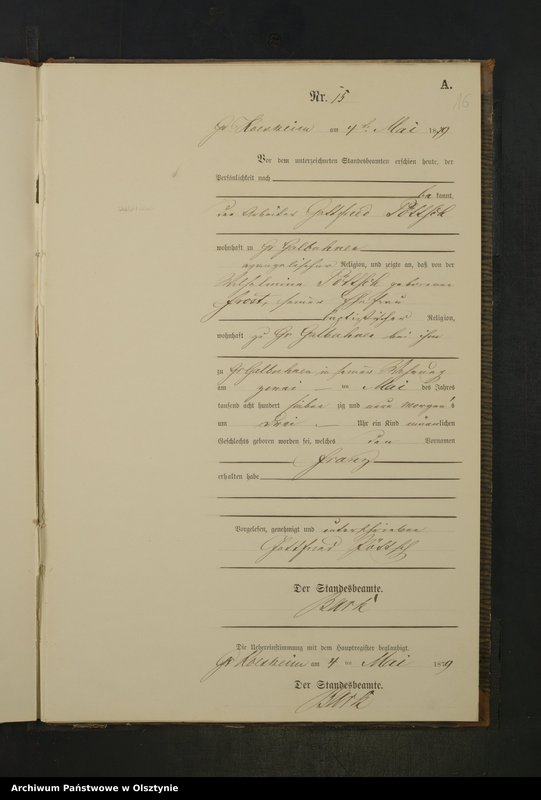 A.
16
Nr. 15
am 4ten Mai 1879
Vor dem unterzeichneten Standesbeamten erschien heute, der
Persönlichkeit nach
be kannt,
der Arbeiter Gottfried
wohnhaft zu Gr
evangelischer Religion, und zeigte an, daß von der
Wilhelmina geborene
Frost, seiner Ehefrau
baptistischer Religion,
wohnhaft zu Gr bei ihm
zu Gr in seiner Wohnung
am zwei ten Mai des Jahres
tausend acht hundert sieben zig und neun Morgens
um drei Uhr ein Kind männlichen
Geschlechts geboren worden sei, welches den Vornamen
Franz
erhalten habe
Vorgelesen, genehmigt und unterschrieben
Gottfried
Der Standesbeamte.
Die Uebereinstimmung mit dem Hauptregister beglaubigt.
am 4 ten Mai 1879
Der Standesbeamte.
Archiwum Państwowe w Olsztynie